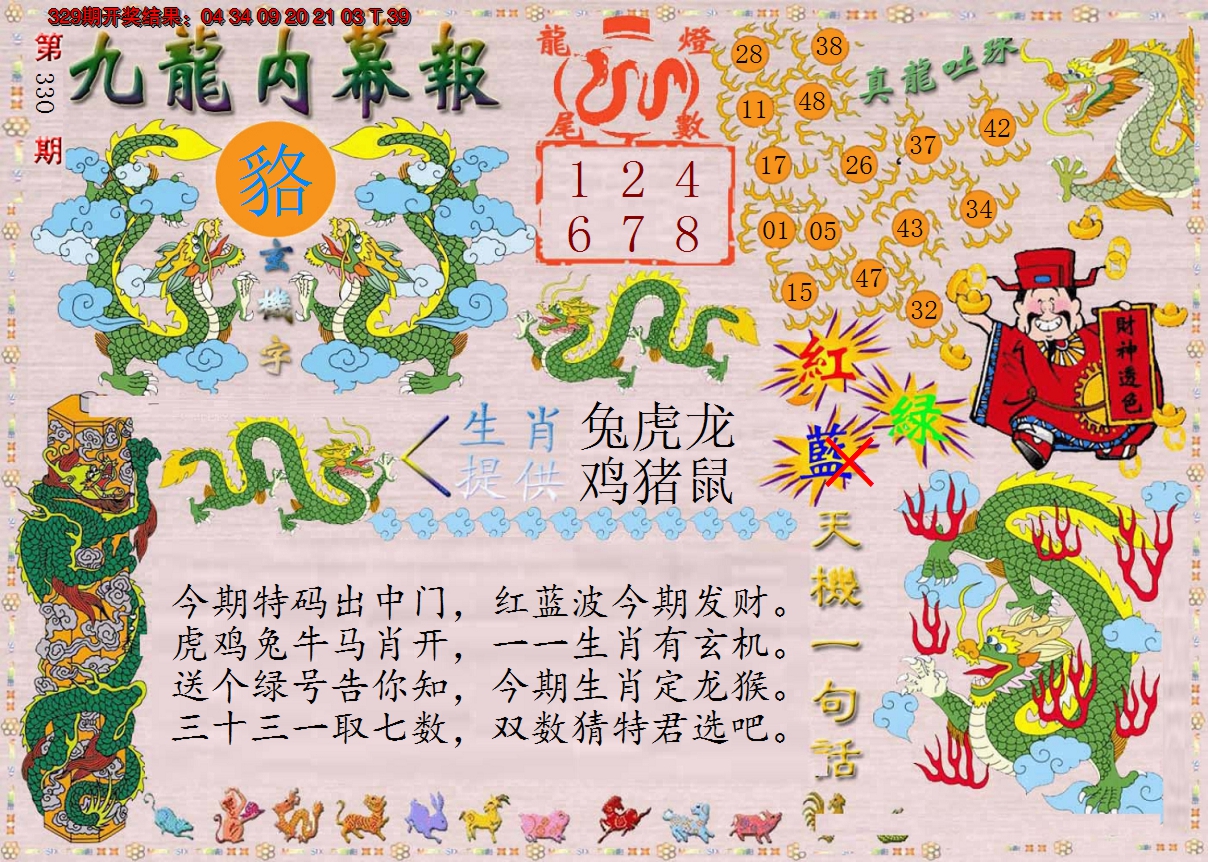 329期开奖结果：04 34 09 20 21 03 T 39
第330期
九龍内幕報
貉
玄機字
龍燈
尾數
1 2 4
6 7 8
真龍吐珠
28 38
11 48
17 26 37 42
01 05 43 34
15 47 32
財神透色
紅
绿
藍
生肖 兔虎龙
提供 鸡猪鼠
天機一句话
今期特码出中门，红蓝波今期发财。
虎鸡兔牛马肖开，一一生肖有玄机。
送个绿号告你知，今期生肖定龙猴。
三十三一取七数，双数猜特君选吧。